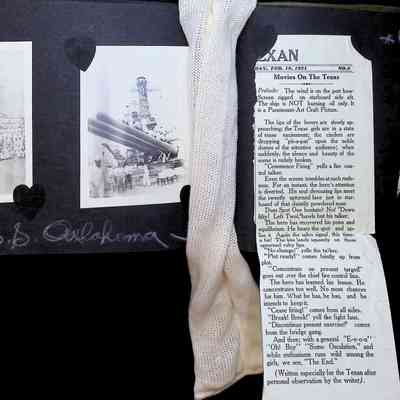 EXAN
AY, FEB. 19, 1921 NO. 6
Movies On The Texas
Prelude: The wind is on the port bow.
Screen rigged on starboard side aft.
The ship is NOT burning oil only. It
is a Paramount-Art Craft Picture.
The lips of the lovers are slowly ap-
proaching; the Texas girls are in a state
of tense excitement; the cinders are
dropping "pit-a-pat" upon the noble
domes of the attentive audience; when
suddenly, the silence and beauty of the
scene is rudely broken.
"Commence Firing" yells a fire con-
trol talker.
Even the screen trembles at such rude-
ness. For an instant, the hero's attention
is diverted. His soul devouring lips meet
the sweetly upturned face just in
board of that daintily powdered nose.
Darn Spot One honkets! No! "Down
fifty! Left Two!," barks out his talker.
The hero has recovered his poise and
equilibrium. He hears the spot and
it. Again the salvo signal, this time
a hit! The lips lands squarely on those
upturned ruby lips.
"No change!" yells the talker.
"Plot ready!" comes faintly up from
plot.
"Concentrate on present target!"
goes out over the chief fire control line.
The hero has learned his lesson. He
concentrates too well. No more chances
for him. What he has, he has, and he
intends to keep it.
"Cease firing!" comes from all sides.
"Break! Break!" yell the fight fans.
"Discontinue present exercise!" comes
from the bridge gang.
And then; with a general "E-v-o-a"
"Oh! Boy" "Some Osculation," and
while enthusiasm runs wild among the
girls, we see, "The End."
(Written especially for the Texan after
personal observation by the writer).
S Oklahoma